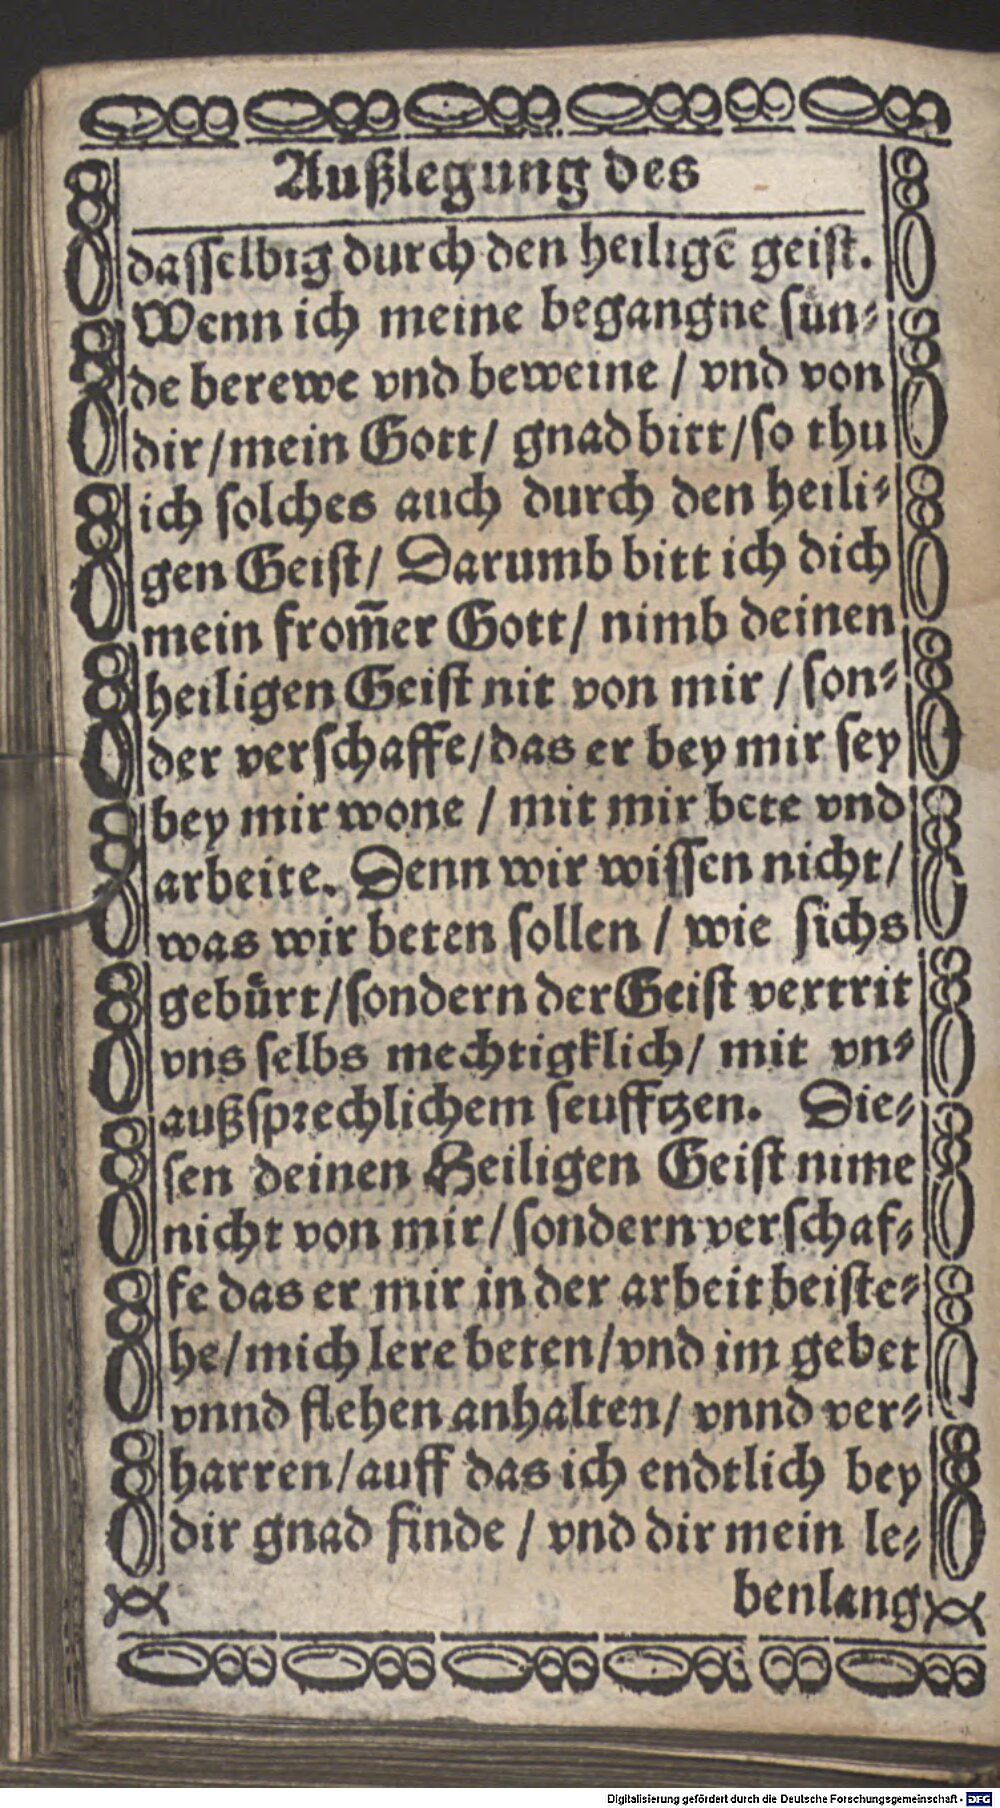 Außlegung des
dasselbig durch den heiligē geist.
Wenn ich meine begangne sün⸗
de berewe vnd beweine / vnd von
dir / mein Gott / gnad bitt / so thu
ich solches auch durch den heili⸗
gen Geist / Darumb bitt ich dich
mein from̃er Gott / nimb deinen
heiligen Geist nit von mir / son⸗
der verschaffe / das er bey mir sey
bey mir wone / mit mir bete vnd
arbeite. Denn wir wissen nicht /
was wir beten sollen / wie sichs
gebürt / sondern der Geist vertrit
vns selbs mechtigklich / mit vn⸗
außsprechlichem seufftzen. Die⸗
sen deinen Heiligen Geist nime
nicht von mir / sondern verschaf⸗
fe das er mir in der arbeit beiste⸗
he / mich lere beten / vnd im gebet
vnnd flehen anhalten / vnnd ver⸗
harren / auff das ich endtlich bey
dir gnad finde / vnd dir mein le⸗
benlang
Digitalisierung gefördert durch die Deutsche Forschungsgemeinschaft - DFG